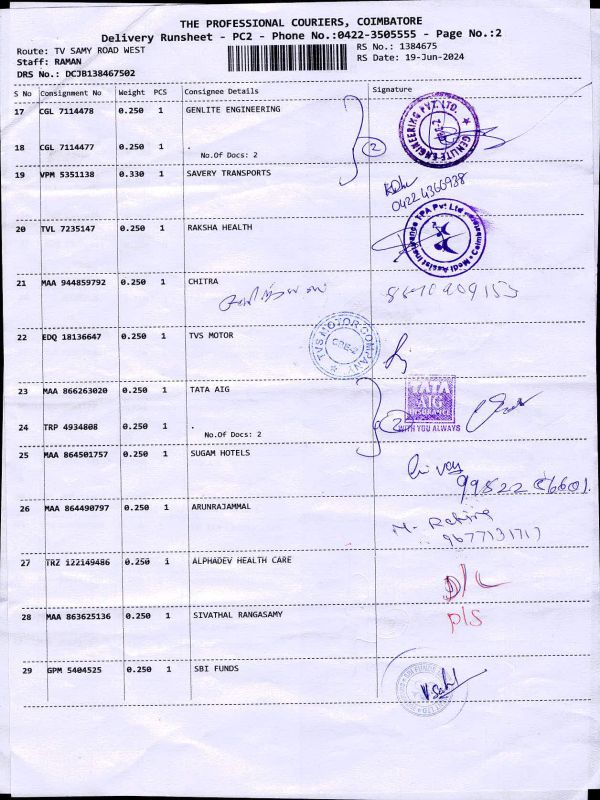 THE PROFESSIONAL COURIERS, COIMBATORE
Delivery Runsheet - PC2 - Phone No.:0422-3505555 - Page No.:2
Route: TV SAMY ROAD WEST
RS No.: 1384675
Staff: RAMAN
RS Date: 19-Jun-2024
DRS No.: DCJB138467502
S No Consignment No Weight PCS Consignee Details Signature
17 CGL 7114478 0.250 1 GENLITE ENGINEERING
GENLITE ENGINEERING PVT. LTD.
18 CGL 7114477 0.250 1 .
No.Of Docs: 2
2
19 VPM 5351138 0.330 1 SAVERY TRANSPORTS
0422 4360938
20 TVL 7235147 0.250 1 RAKSHA HEALTH
Medi Assist Insurance TPA Pvt Ltd Coimbatore
21 MAA 944859792 0.250 1 CHITRA
22 EDQ 18136647 0.250 1 TVS MOTOR
TVS MOTOR COMPANY
CBE-2
23 MAA 866263020 0.250 1 TATA AIG
TATA
AIG
INSURANCE
WITH YOU ALWAYS
24 TRP 4934808 0.250 1 .
No.Of Docs: 2
2
25 MAA 864501757 0.250 1 SUGAM HOTELS
26 MAA 864490797 0.250 1 ARUNRAJAMMAL
9677131717
27 TRZ 122149486 0.250 1 ALPHADEV HEALTH CARE
D/L
28 MAA 863625136 0.250 1 SIVATHAL RANGASAMY
P/S
29 GPM 5404525 0.250 1 SBI FUNDS
SBI FUNDS